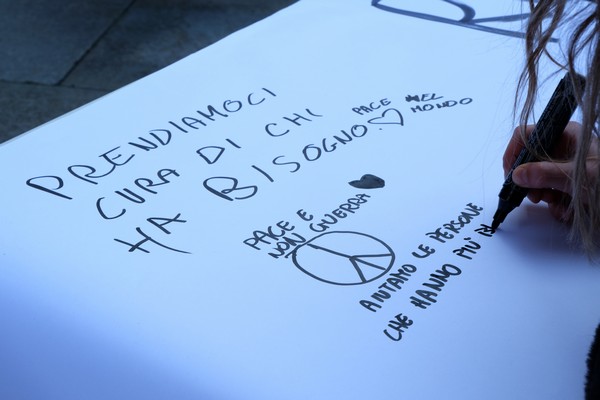 PRENDIAMOCI
CURA DI CHI
HA BISOGNO.
PACE NEL
MONDO
PACE E
NON GUERRA
AIUTAMO LE PERSONE
CHE HANNO PIÙ